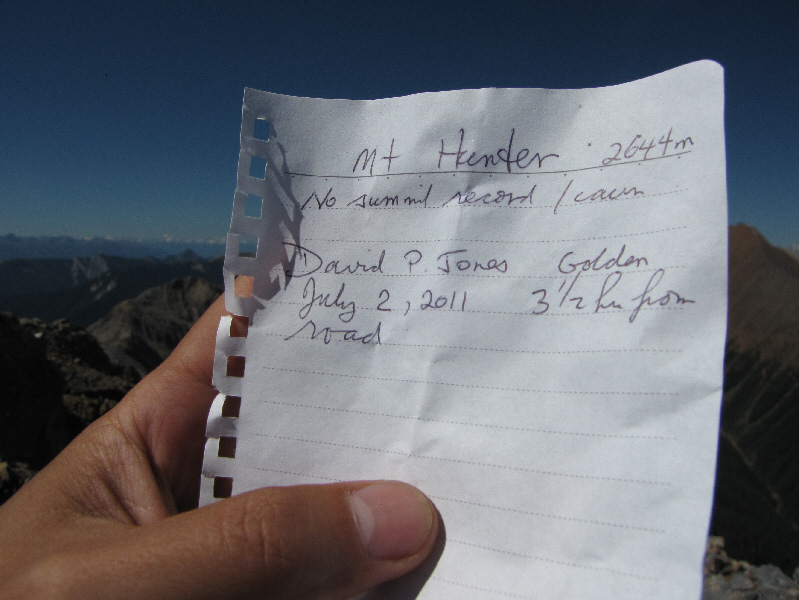 Mt Hunter 2644m
No summit record / cairn
David P. Jones Golden
July 2, 2011 3 1/2 hr from
road